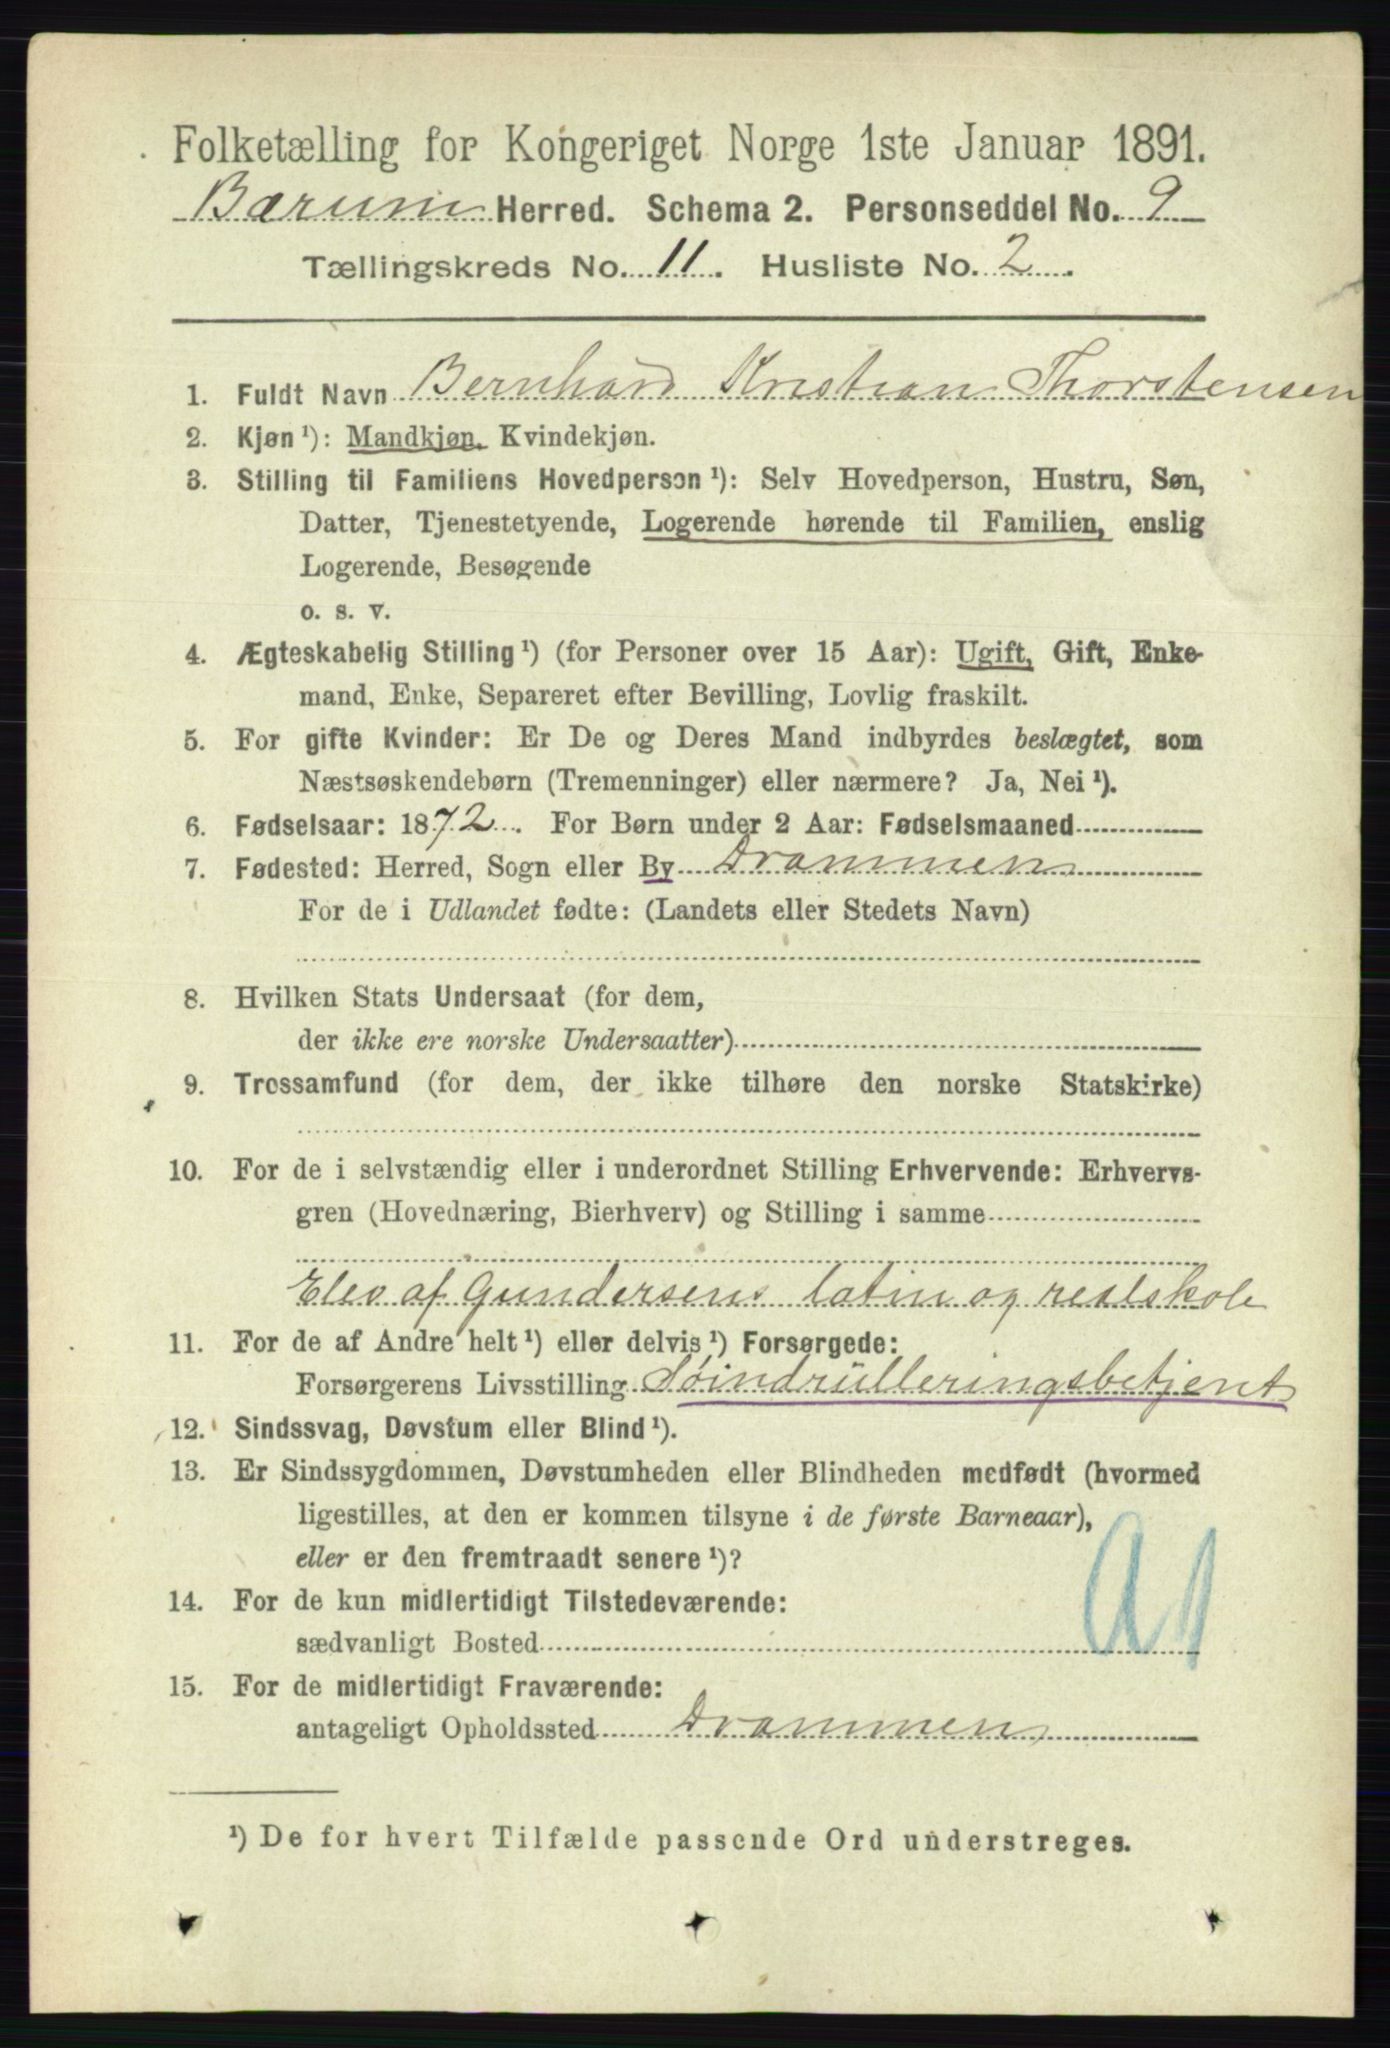 Folketælling for Kongeriget Norge 1ste Januar 1891.
Bærum Herred. Schema 2. Personseddel No. 9
Tællingskreds No. 11. Husliste No. 2.
1. Fuldt Navn Bernhard Kristian Thorstensen
2. Kjøn ¹): Mandkjøn, Kvindekjøn.
3. Stilling til Familiens Hovedperson ¹): Selv Hovedperson, Hustru, Søn,
Datter, Tjenestetyende, Logerende hørende til Familien, enslig
Logerende, Besøgende
o. s. v.
4. Ægteskabelig Stilling ¹) (for Personer over 15 Aar): Ugift, Gift, Enke-
mand, Enke, Separeret efter Bevilling, Lovlig fraskilt.
5. For gifte Kvinder: Er De og Deres Mand indbyrdes beslægtet, som
Næstsøskendebørn (Tremenninger) eller nærmere? Ja, Nei ¹).
6. Fødselsaar: 1872. For Børn under 2 Aar: Fødselsmaaned
7. Fødested: Herred, Sogn eller By Drammen
For de i Udlandet fødte: (Landets eller Stedets Navn)
8. Hvilken Stats Undersaat (for dem,
der ikke ere norske Undersaatter)
9. Trossamfund (for dem, der ikke tilhøre den norske Statskirke)
10. For de i selvstændig eller i underordnet Stilling Erhvervende: Erhvervs-
gren (Hovednæring, Bierhverv) og Stilling i samme
Elev af Gundersens latin og realskole
11. For de af Andre helt ¹) eller delvis ¹) Forsørgede:
Forsørgerens Livsstilling Søindrulleringsbetjent
12. Sindssvag, Døvstum eller Blind ¹).
13. Er Sindssygdommen, Døvstumheden eller Blindheden medfødt (hvormed
ligestilles, at den er kommen tilsyne i de første Barneaar),
eller er den fremtraadt senere ¹)?
A1
14. For de kun midlertidigt Tilstedeværende:
sædvanligt Bosted
15. For de midlertidigt Fraværende:
antageligt Opholdssted Drammen
¹) De for hvert Tilfælde passende Ord understreges.